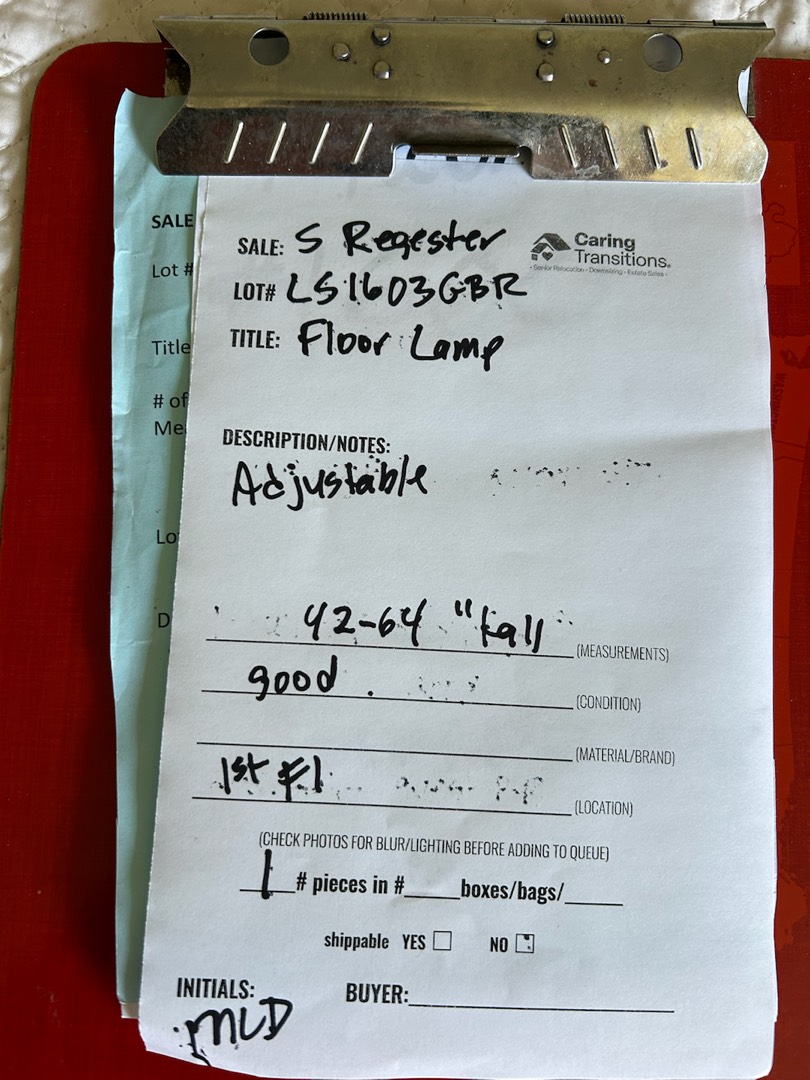 SALE: S Regester
Caring
Transitions
Senior Relocation • Downsizing • Estate Sales
LOT# LS1603GBR
TITLE: Floor Lamp
DESCRIPTION/NOTES:
Adjustable
42-64 "tall
(MEASUREMENTS)
good.
(CONDITION)
(MATERIAL/BRAND)
1st Fl
(LOCATION)
(CHECK PHOTOS FOR BLUR/LIGHTING BEFORE ADDING TO QUEUE)
1 # pieces in #____ boxes/bags/____
shippable YES ☐ NO ☐
INITIALS: BUYER:
MLD
SALE
Lot #
Title
# of
Me
Lo
D